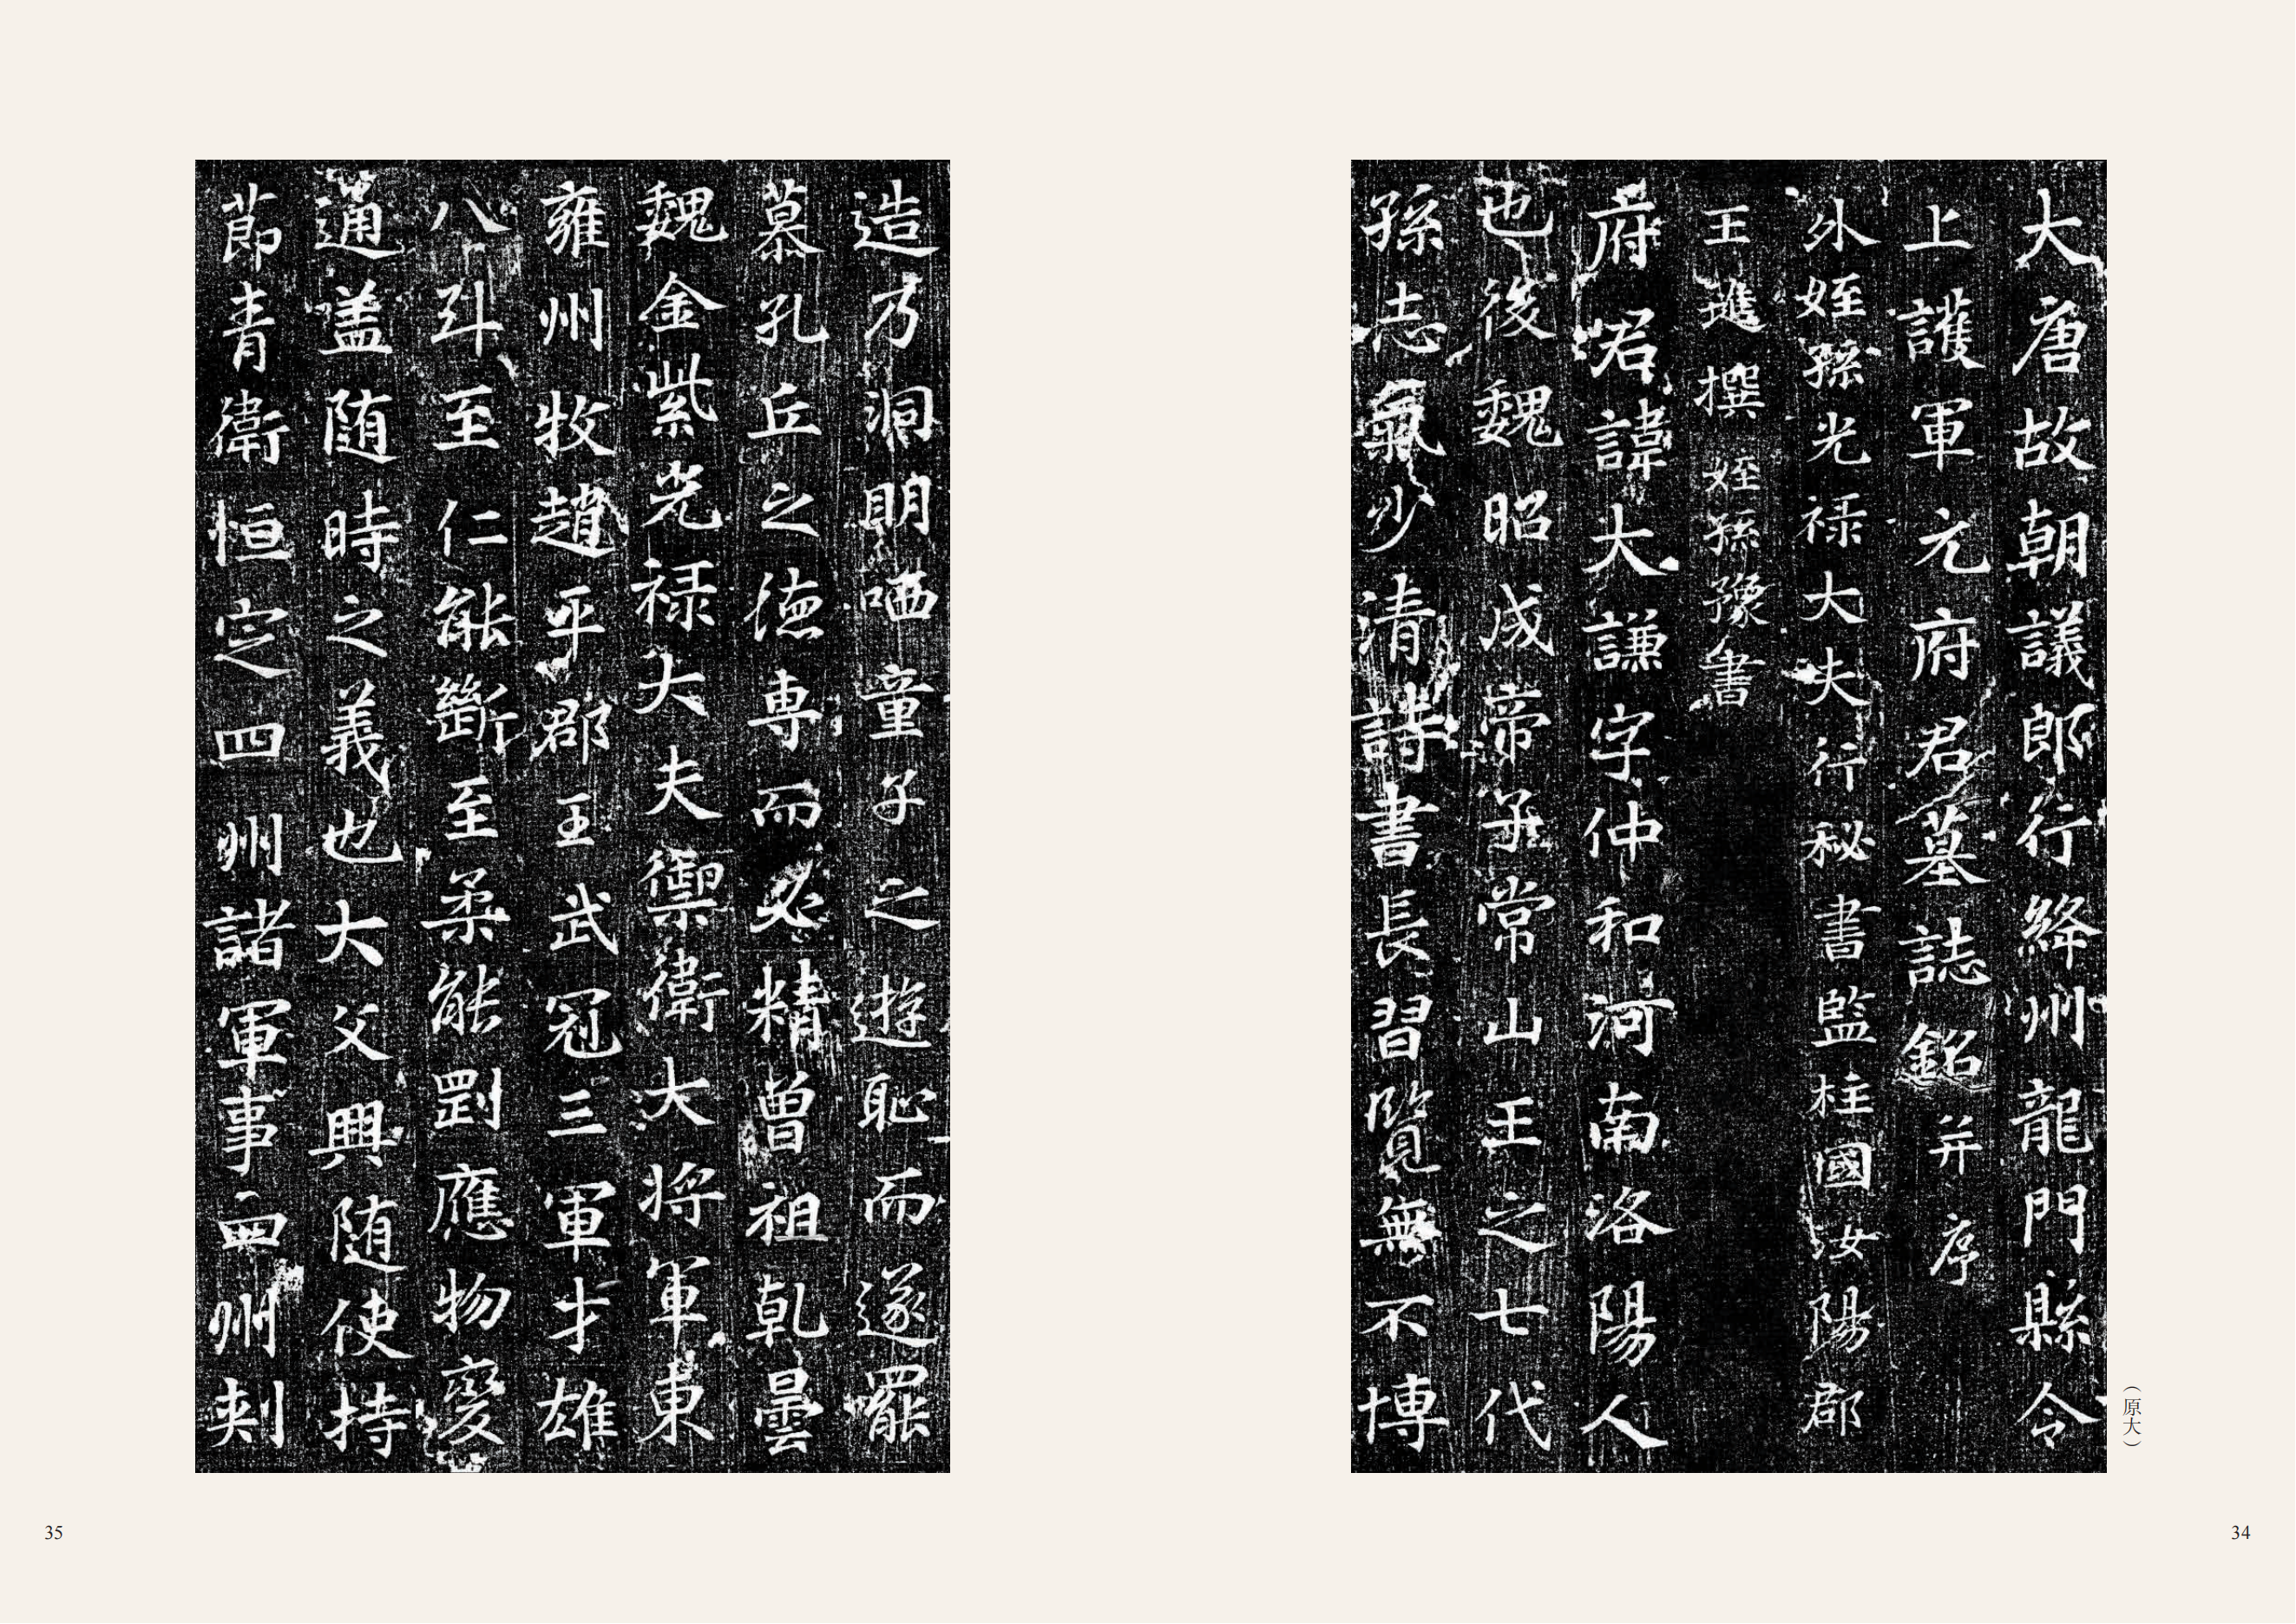 大唐故朝議郎行絳州龍門縣令
上護軍元府君墓誌銘并序
外姪孫光禄大夫行秘書監柱國汝陽郡
王璡撰姪孫豫書
府君諱大謙字仲和河南洛陽人
也後魏昭成帝子常山王之七代
孫志氣少清詩書長習覽無不博
(原大)
34
造乃洞明哂童子之遊恥而遂罷
慕孔丘之德專而必精曾祖乹曇
魏金紫光禄大夫禦衛大將軍東
雍州牧趙平郡王武冠三軍才雄
八斗至仁能斷至柔能剛應物變
通盖随時之義也大父興随使持
節青衛恒定四州諸軍事四州刺
35